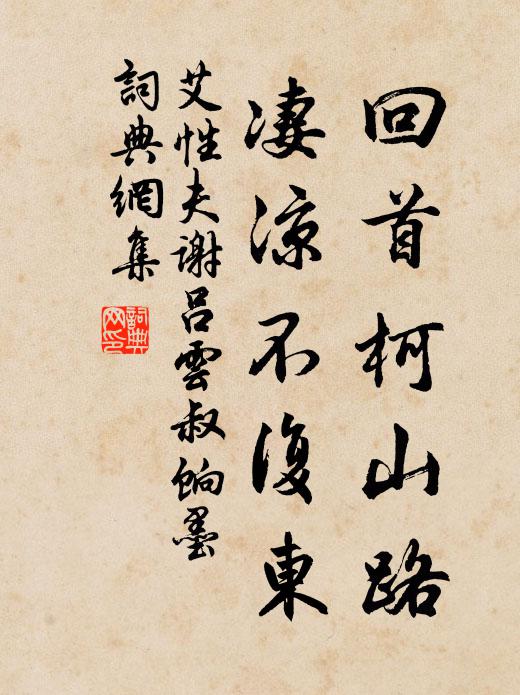 回首柯山路
淒涼不復東
艾性夫謝呂雲叔餉墨
詞典網集
詞典网印